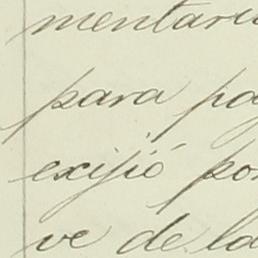 mentari
para pa
exijió por
ve de la